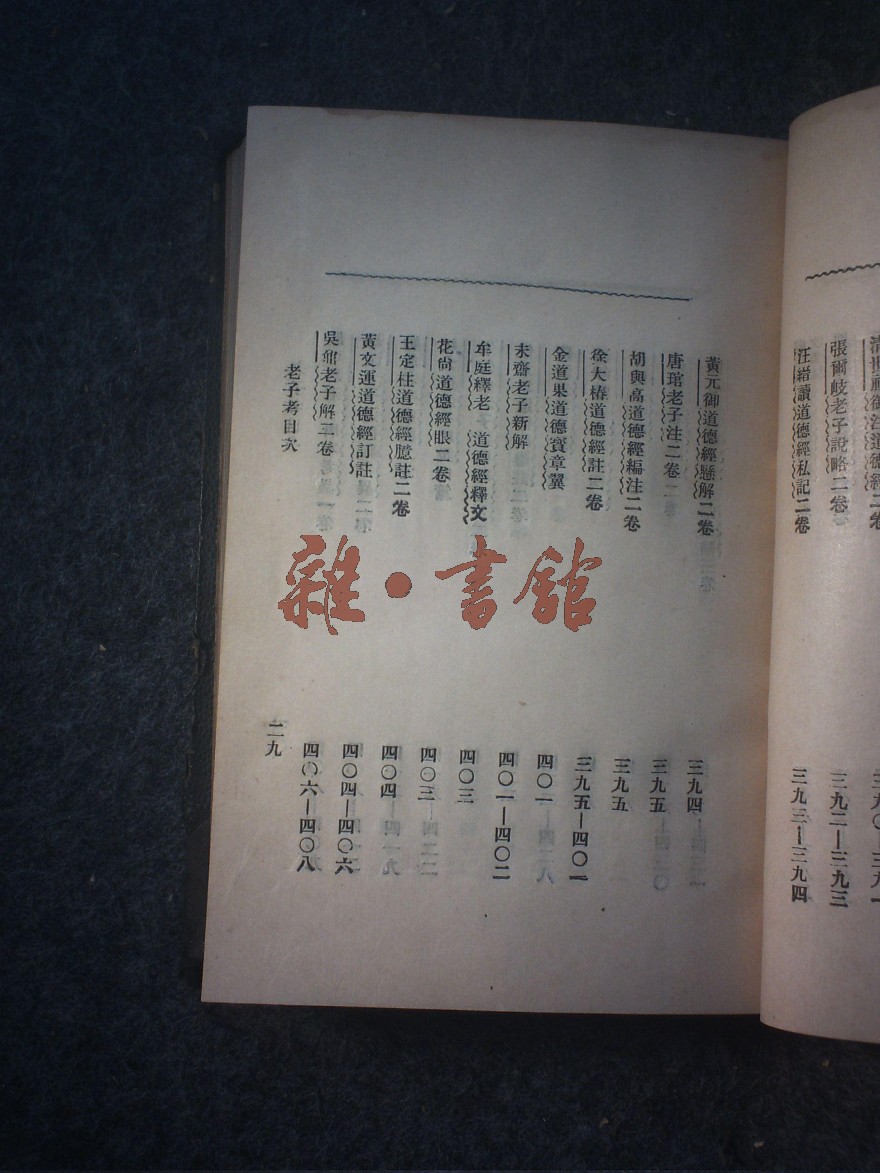 清世祖御注道德經二卷
張爾岐老子說略二卷
汪縉讀道德經私記二卷
三九二—三九三
三九三—三九四
黃元御道德經懸解二卷
唐琯老子注二卷
胡與高道德經編注二卷
徐大椿道德經註二卷
金道果道德寶章翼
未齋老子新解
牟庭釋老 道德經釋文
花尙道德經眼二卷
王定柱道德經臆註二卷
黃文運道德經訂註
吳鼐老子解二卷
三九四
三九五
三九五
三九五—四〇一
四〇一
四〇一—四〇二
四〇三
四〇三
四〇四
四〇四—四〇六
四〇六—四〇八
老子考目次
二九
雜·書館